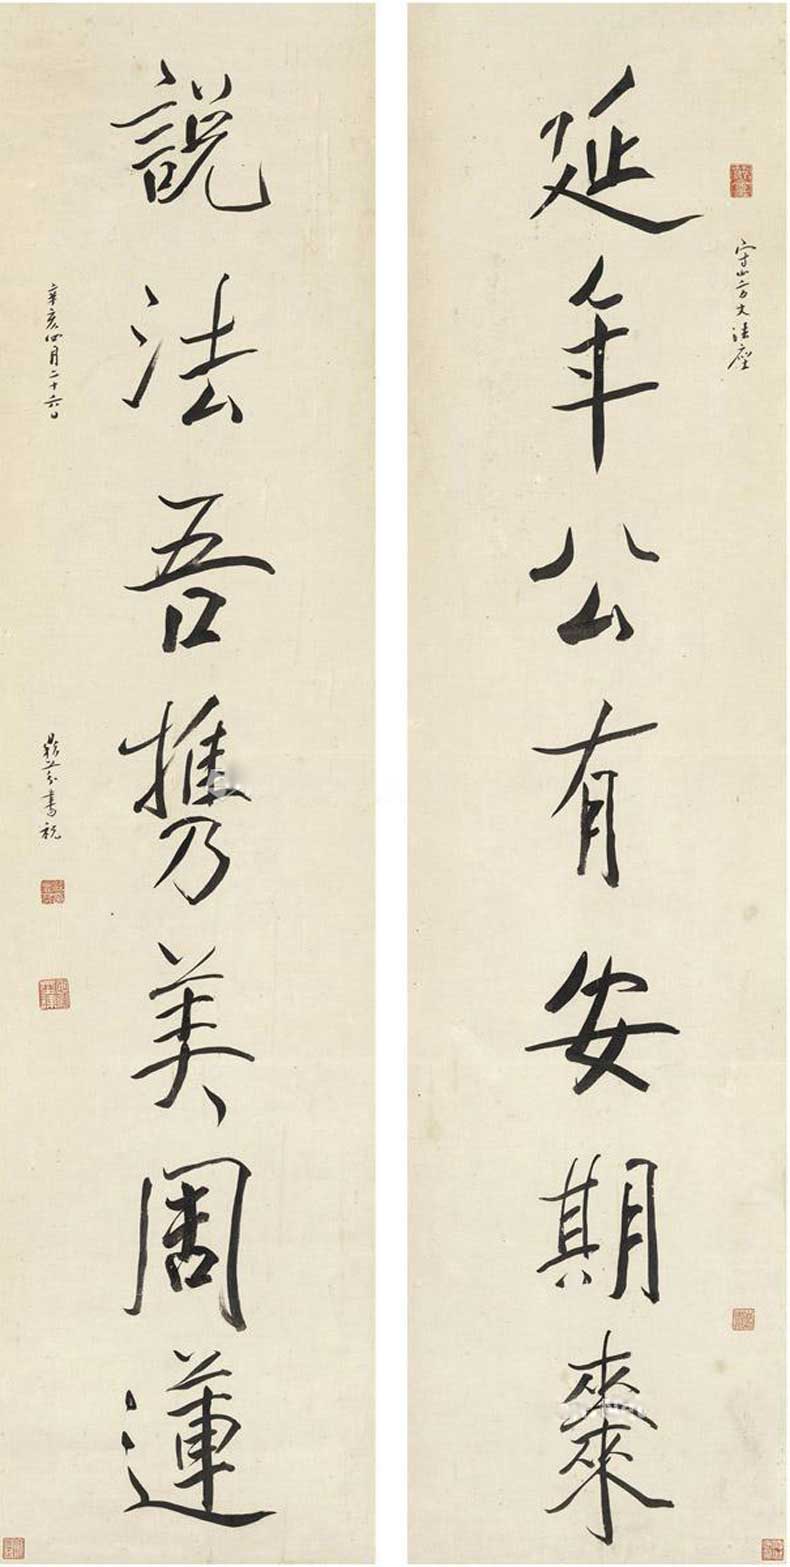 守山方丈法座
延年公有安期棗
說法吾携美周蓮
辛亥四月二十六日
鼎芬書祝